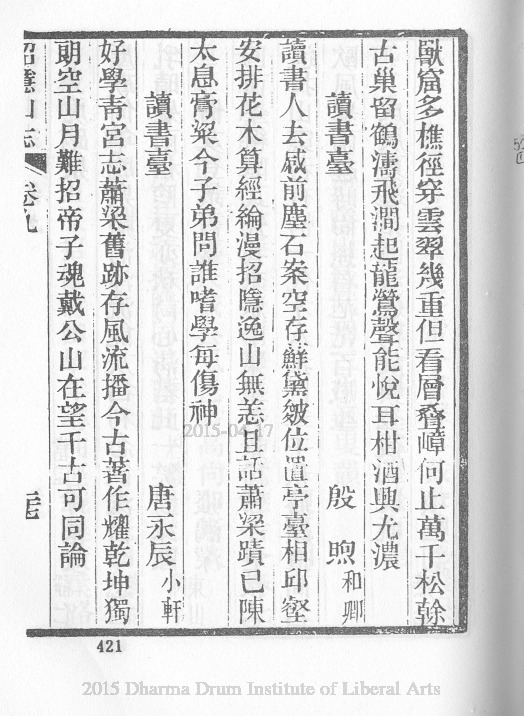 猒窟多樵徑穿雲翠幾重但看層疊嶂何止萬千松榦
古巢留鶴濤飛澗起龍鶯聲能悅耳柑酒興尤濃
讀書臺 殷煦和卿
讀書人去感前塵石案空存蘚黛皴位置亭臺相邱壑
安排花木算經綸漫招隱逸山無恙且話蕭梁蹟已陳
太息膏粱今子弟問誰嗜學每傷神
讀書臺 唐永辰小軒
好學青宮志蕭梁舊跡存風流播今古著作耀乾坤獨
眀空山月難招帝子魂戴公山在望千古可同論
招隱山志 卷九
421
2015-04-17
2015 Dharma Drum Institute of Liberal Arts